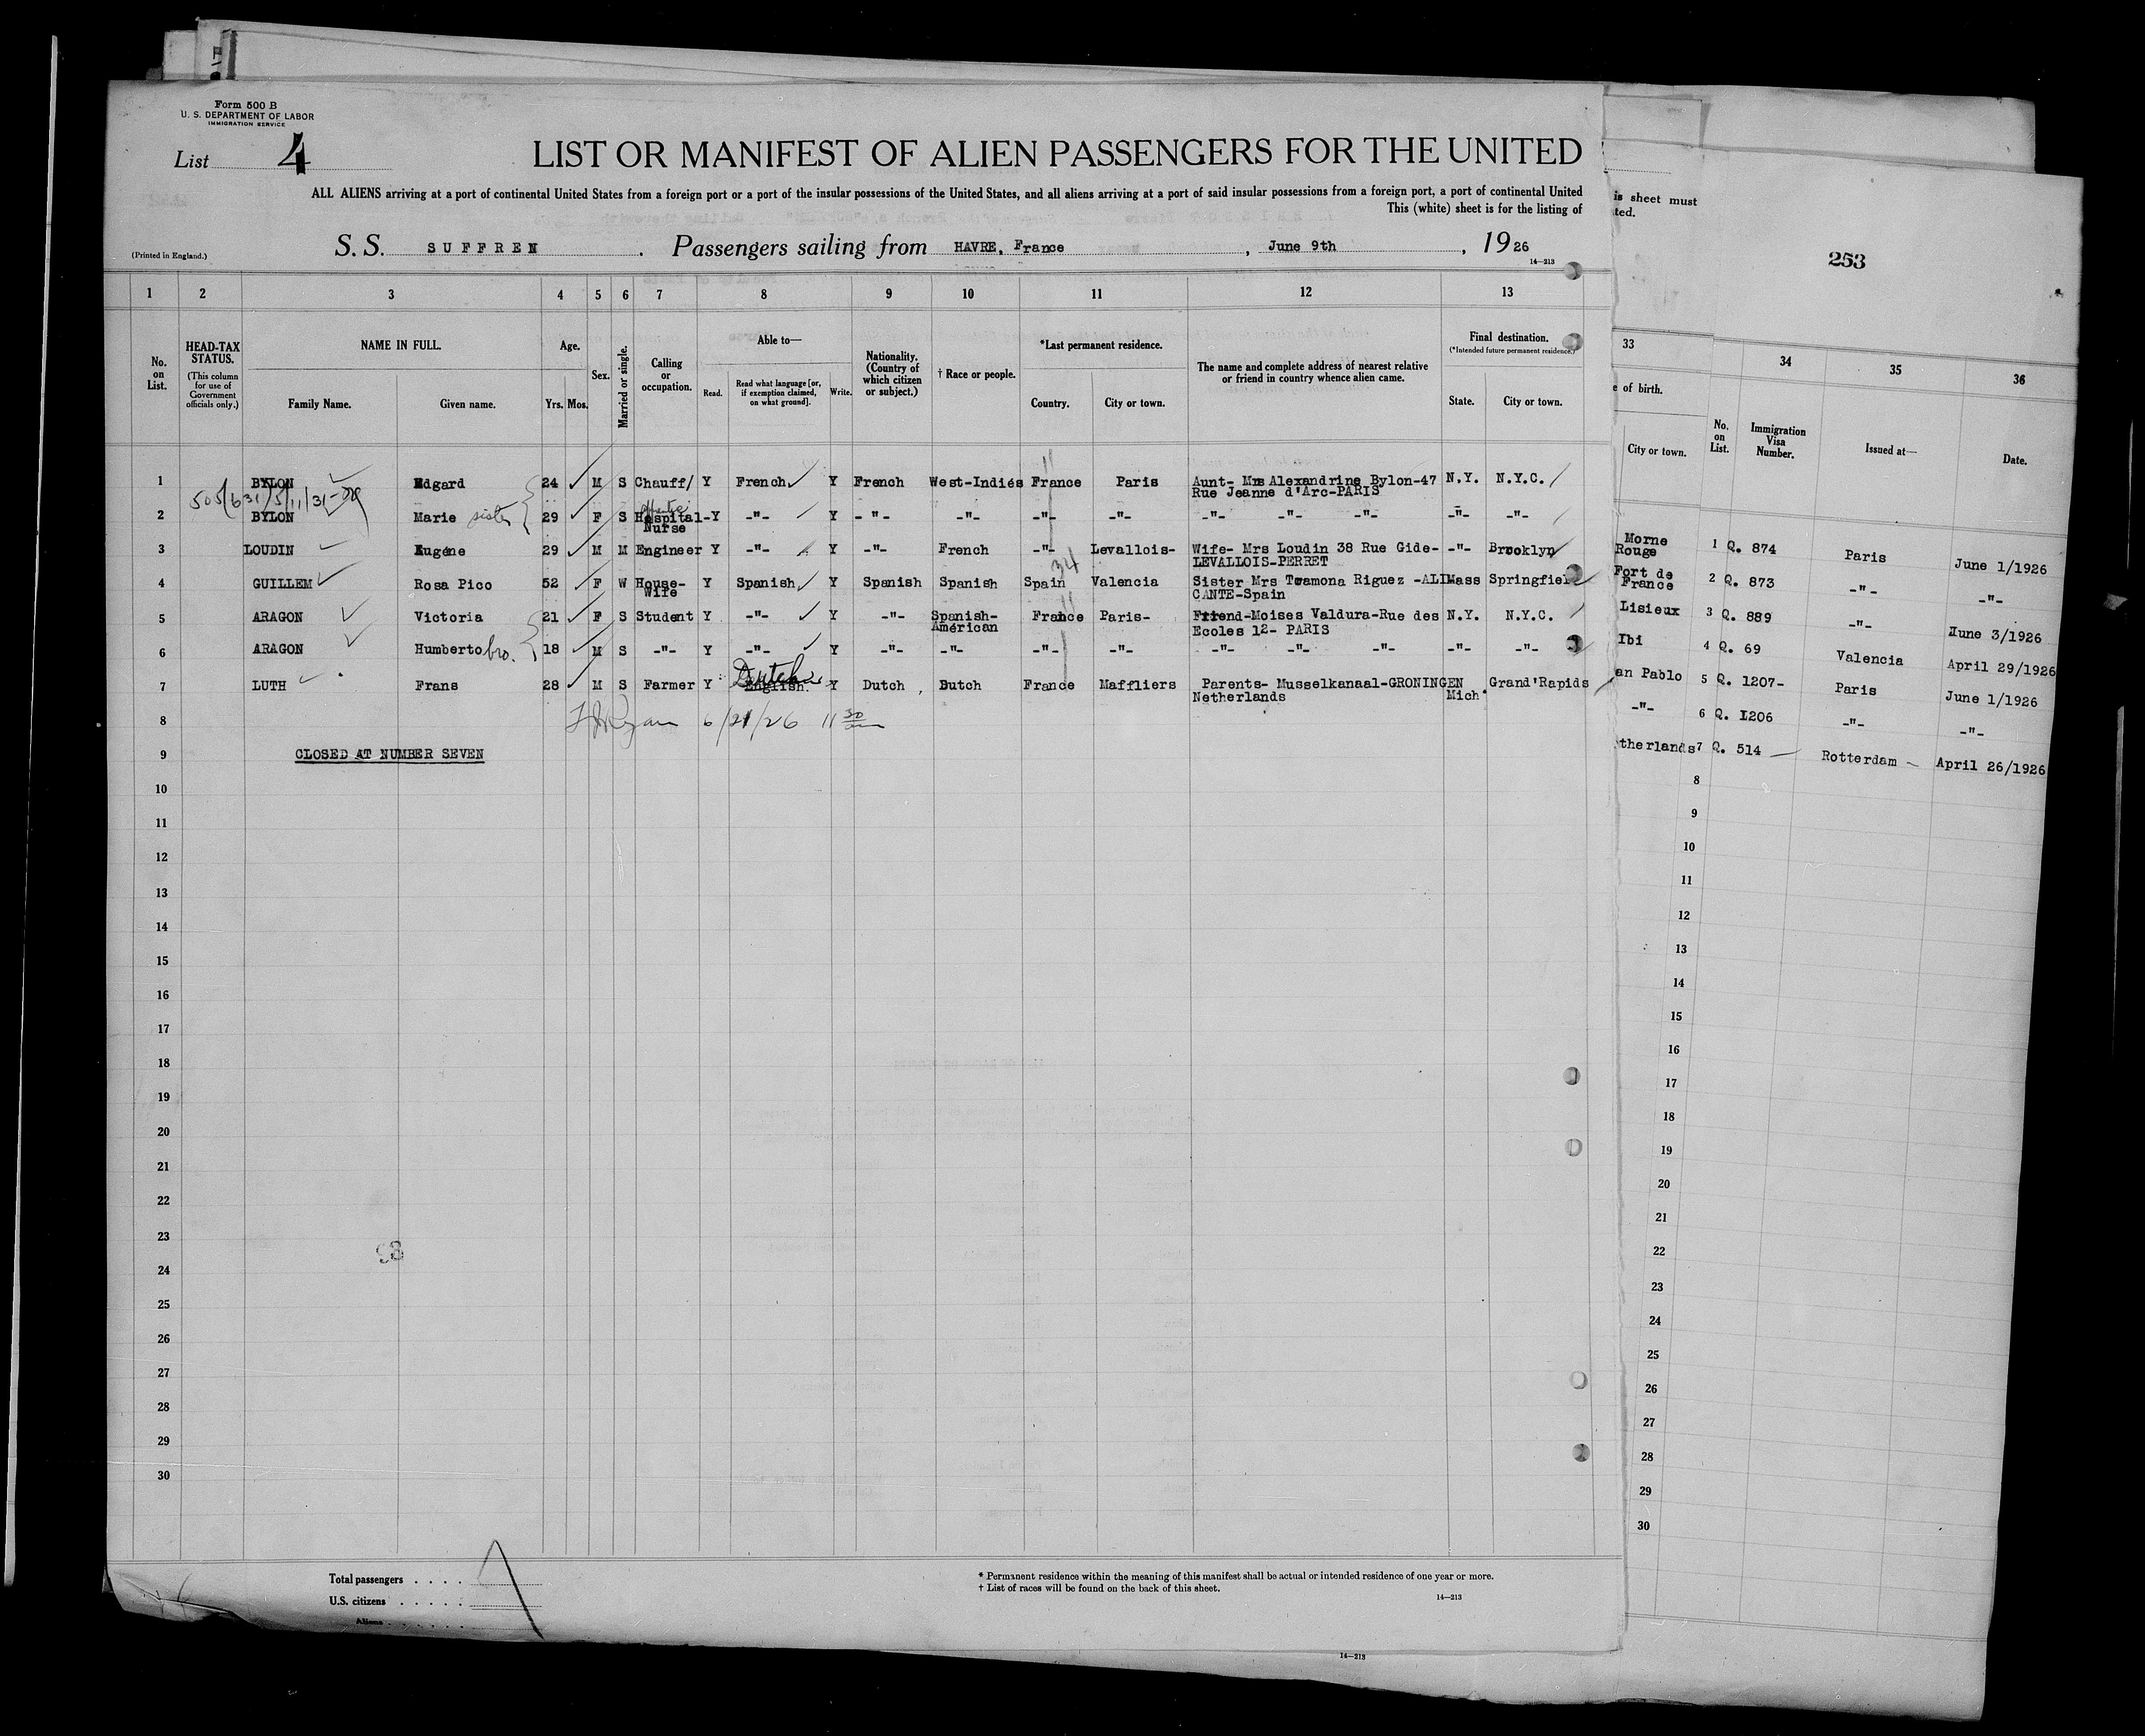 Form 500 B
U. S. DEPARTMENT OF LABOR
IMMIGRATION SERVICE
List 4
LIST OR MANIFEST OF ALIEN PASSENGERS FOR THE UNITED
ALL ALIENS arriving at a port of continental United States from a foreign port or a port of the insular possessions of the United States, and all aliens arriving at a port of said insular possessions from a foreign port, a port of continental United
This (white) sheet is for the listing of
is sheet must
ted.
(Printed in England.)
S. S. SUFFREN. Passengers sailing from HAVRE, France, June 9th, 1926
14—213
253
1 2 3 4 5 6 7 8 9 10 11 12 13
33 34 35 36
No. on List.
HEAD-TAX STATUS.
(This column for use of Government officials only.)
NAME IN FULL.
Family Name. Given name.
Age.
Yrs. Mos.
Sex.
Married or single.
Calling or occupation.
Able to—
Read.
Read what language [or, if exemption claimed, on what ground].
Write.
Nationality. (Country of which citizen or subject.)
† Race or people.
*Last permanent residence.
Country. City or town.
The name and complete address of nearest relative or friend in country whence alien came.
Final destination.
(*Intended future permanent residence.)
State. City or town.
e of birth.
City or town.
No. on List.
Immigration Visa Number.
Issued at—
Date.
1 BYLON Edgard 24 M S Chauff/ Y French Y French West-Indiés France Paris Aunt- Mrs Alexandrine Bylon-47 N.Y. N.Y.C.
Rue Jeanne d'Arc-PARIS
2 BYLON Marie sister 29 F S Hospital- Y -"- Y -"- -"- -"- -"- -"- -"- -"- -"- -"-
Nurse
3 LOUDIN Eugéne 29 M M Engineer Y -"- Y -"- French -"- Levallois- Wife- Mrs Loudin 38 Rue Gide- -"- Brooklyn
LEVALLOIS-PERRET
34
4 GUILLEM Rosa Pico 52 F W House- Y Spanish Y Spanish Spanish Spain Valencia Sister Mrs Tramona Riguez -ALI Mass Springfiel
Wife CANTE-Spain
5 ARAGON Victoria 21 F S Student Y -"- Y -"- Spanish- France Paris- Friend-Moises Valdura-Rue des N.Y. N.Y.C.
American Ecoles 12- PARIS
6 ARAGON Humberto bro. 18 M S -"- Y -"- Y -"- -"- -"- -"- -"- -"- -"- -"- -"-
Dutch
7 LUTH Frans 28 M S Farmer Y English. Y Dutch Dutch France Maffliers Parents- Musselkanaal-GRONINGEN Grand'Rapids
Netherlands Mich
8 6/21/26 11 30
9 CLOSED AT NUMBER SEVEN
10
11
12
13
14
15
16
17
18
19
20
21
22
23
98
24
25
26
27
28
29
30
Morne Rouge 1 Q. 874 Paris June 1/1926
Fort de France 2 Q. 873 -"- -"-
Lisieux 3 Q. 889 -"- June 3/1926
Ibi 4 Q. 69 Valencia April 29/1926
an Pablo 5 Q. 1207- Paris June 1/1926
-"- 6 Q. 1206 -"- -"-
therlands 7 Q. 514 Rotterdam April 26/1926
8
9
10
11
12
13
14
15
16
17
18
19
20
21
22
23
24
25
26
27
28
29
30
Total passengers
U.S. citizens
Aliens
* Permanent residence within the meaning of this manifest shall be actual or intended residence of one year or more.
† List of races will be found on the back of this sheet.
14—213
14—213